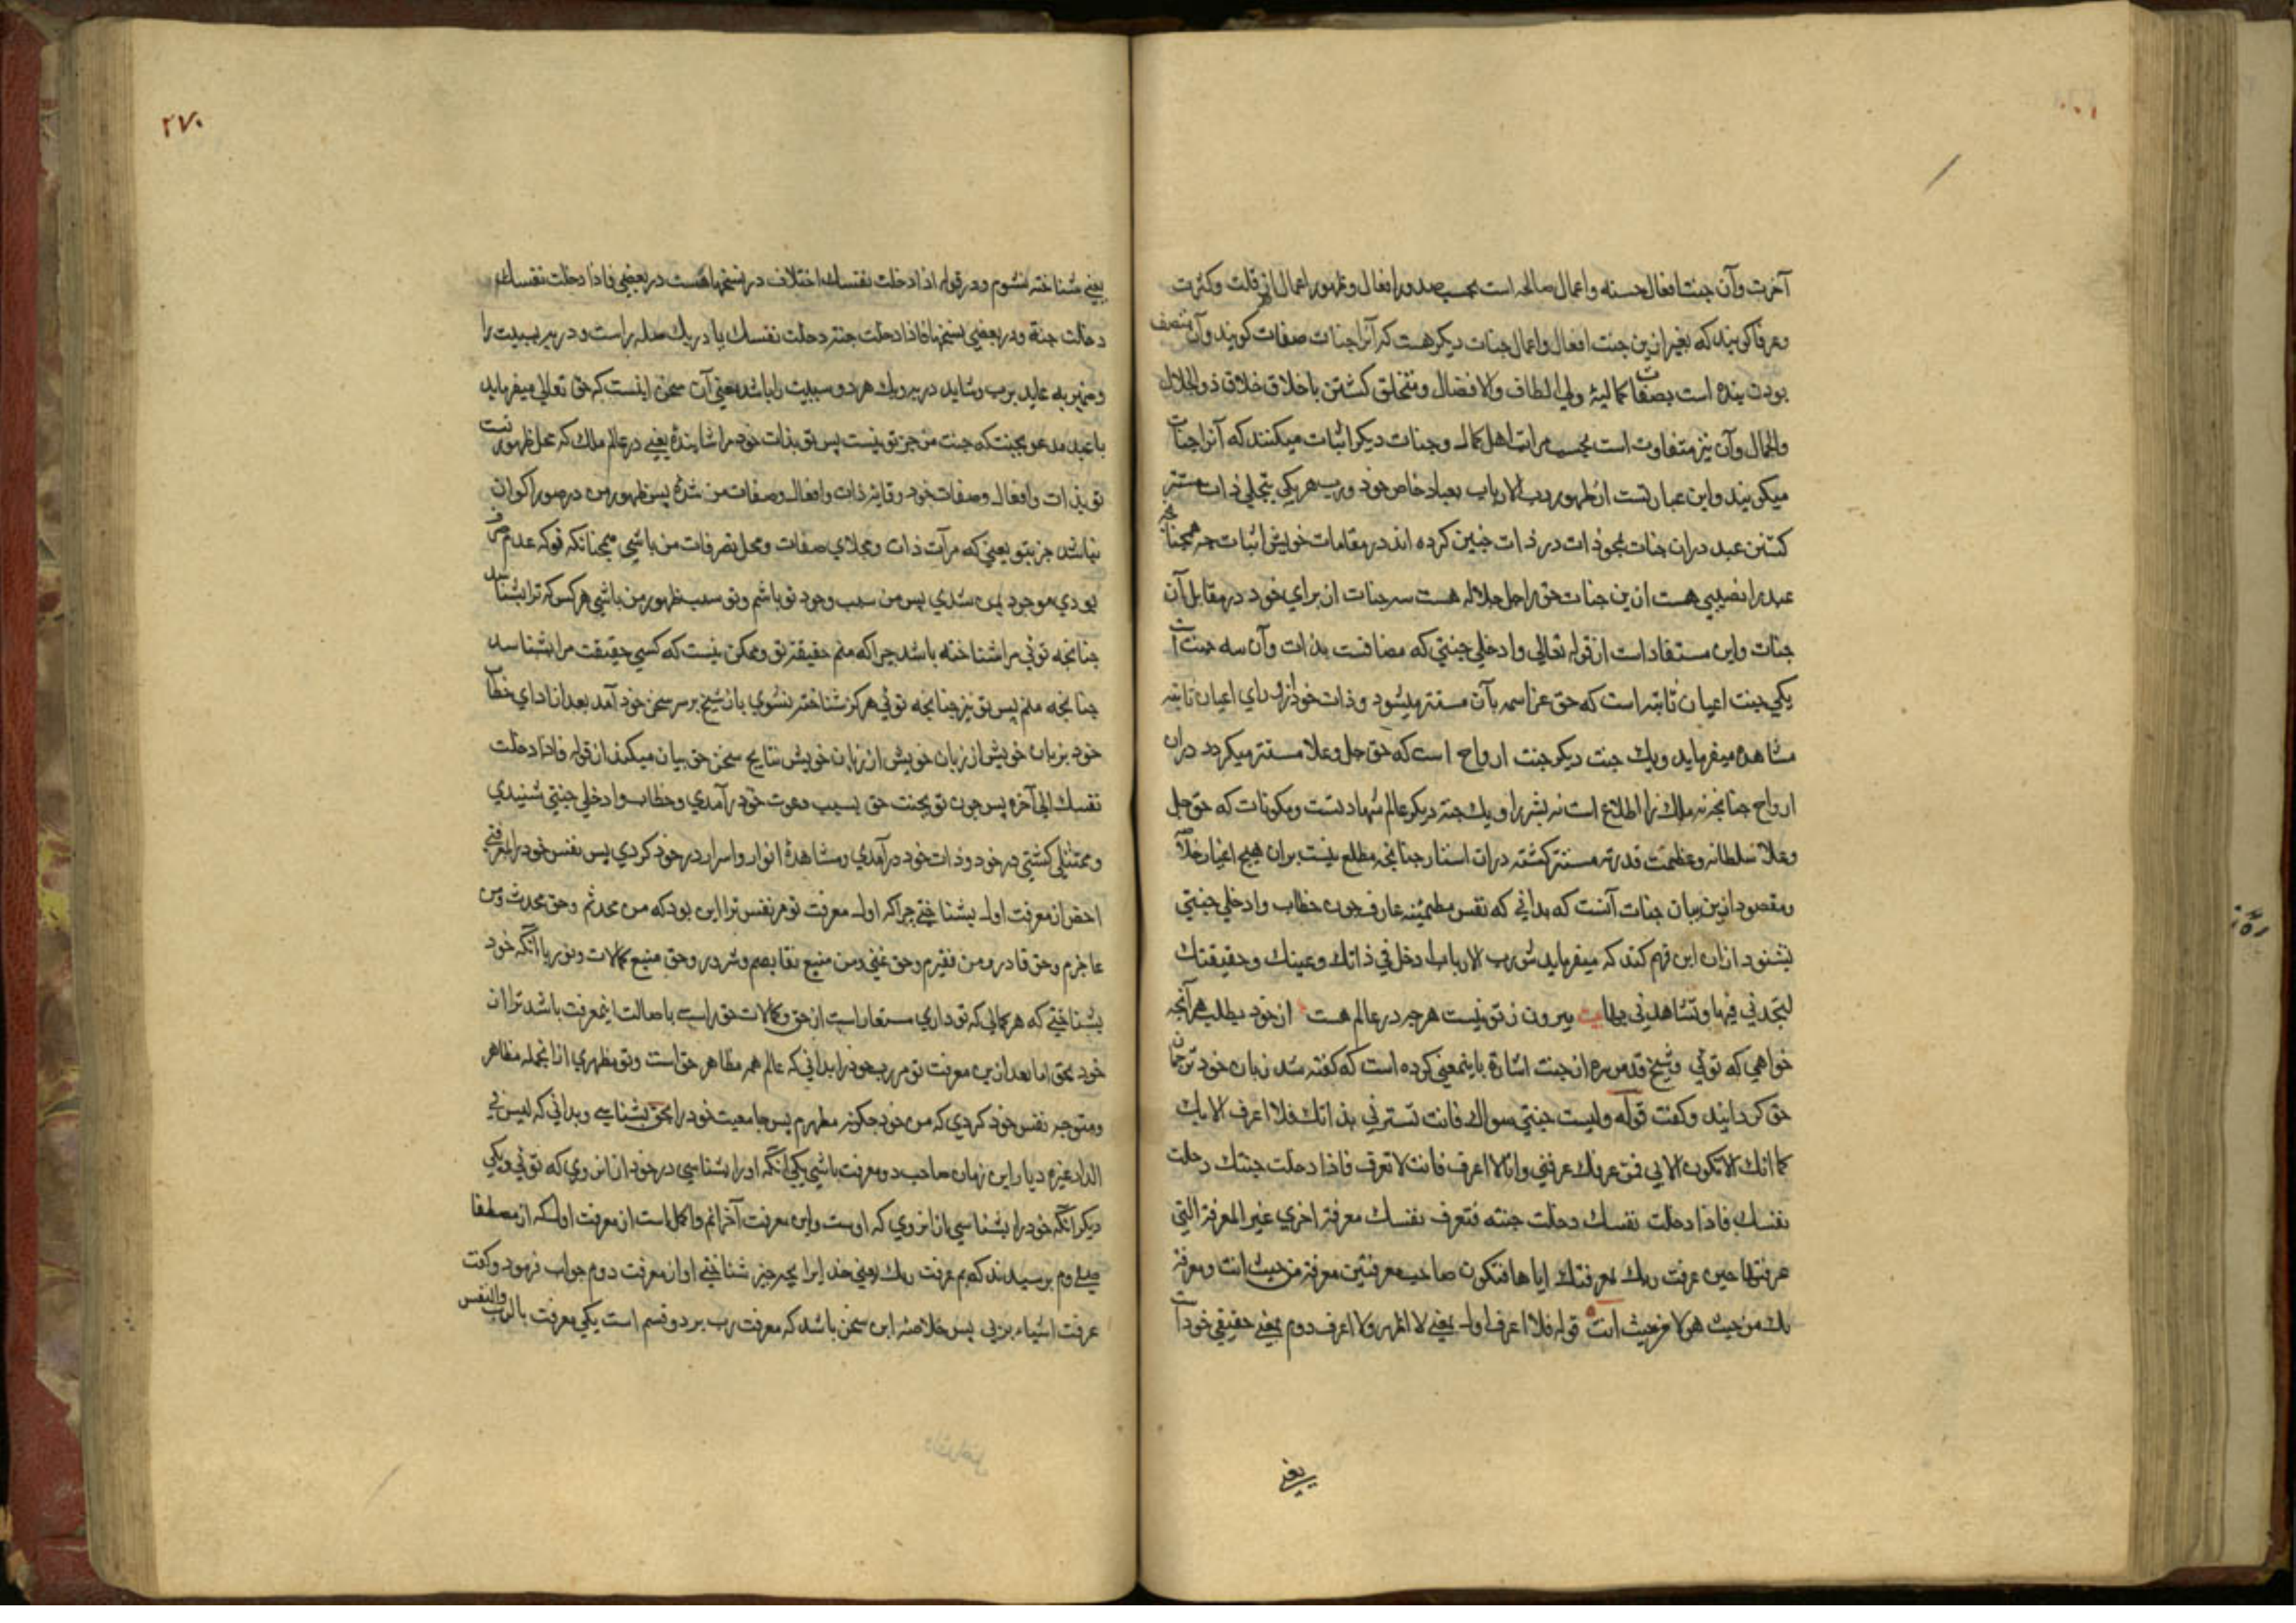 آخرت وآن جنت افعال حسنه واعمال صالحه است بحسب صدور افعال وظهور اعمال از قلت وكثرت
وعرفا كويند كه بغير ازين جنت افعال واعمال جنات ديكر هست كه آنرا جنات صفات كويند وآن متصف
بودن بنده است بصفات كماليۀ ولي الطاف والافضال ومتخلق كشتن باخلاق خلاق ذو الجلال
والجمال وآن نيز متفاوت است بحسب مراتب اهل كمال وجنات ديكر اثبات ميكنند كه آنرا جنات
ميكويند واين عبارتست از ظهور رب الارباب بعباد خاص خود ورب هر يكي بتجلي ذات مستتر
كشتن عبد دران جنات بمحو ذات در ذات جنين كرده اند در مقامات خويش اثبات جه همجنانجه
عبد را نصيبي هست ازين جنات حق را جل جلاله هست سه جنات از براي خود در مقابل آن
جنات واين مستفاد است از قوله تعالي وادخلي جنتي كه مضافست بذات وآن سه جنت است
يكي جنت اعيان ثابته است كه حق عز اسمه بآن مستتر ميشود وذات خود از وراي اعيان ثابته
مشاهده ميفرمايد ويك جنت ديكر جنت ارواح است كه حق جل وعلا مستتر ميكردد دران
ارواح جنانجه نه ملك را اطلاع است نه بشر را ويك جنة ديكر عالم شهادتست ومكونات كه حق جل
وعلا سلطانه وعظمت قدرته مستتر كشته دران استار جنانجه مطلع نيست بران هيج اغيار
ومقصود ازين بيان جنات آنست كه بداني كه نفس مطمئنه عارف جون خطاب وادخلي جنتي
بشنود ازان اين فهم كند كه ميفرمايدش رب الارباب ادخل في ذاتك وعينك وحقيقتك
لتجدني فيها وتشاهدني بها بيت بيرون ز تو نيست هرجه در عالم هست از خود بطلب هر آنجه
خواهي كه توئي وشيخ قدس سره از جنت اشارة باينمعني كرده است كه كفته شد زبان خود ترجمان
حق كردانيد وكفت قوله وليست جنتي سواك فانت تسترني بذاتك فلا اعرف الا بك
كما انك لا تكون الا بي فمن عرفك عرفني وانا لا اعرف فانت لا تعرف فاذا دخلت جنتك دخلت
نفسك فاذا دخلت نفسك دخلت جنته فتعرف نفسك معرفة اخري غير المعرفة التي
عرفتها حين عرفت ربك بمعرفتك اياها فتكون صاحب معرفتين معرفة من حيث انت ومعرفة
بك من حيث هو لا من حيث انت قوله فلا اعرف اول بمعني لا اظهر ولا اعرف دوم بمعني حقيقي خود است
يعني
٢٧٠
يعني شناخته نشوم ودر قوله اذا دخلت نفسك اختلاف در نسخها هست در بعضي فاذا دخلت نفسك
دخلت جنة ودر بعضي نسخها فاذا دخلت جنته دخلت نفسك يا در يك صله راست ودر بر سببيت را
وضمير به عايد برب وشايد در هر يك هر دو سببيت را باشد معني آن سخن اينست كه حق تعالي ميفرمايد
با عبد مدعو بجنت كه جنت من جز تو نيست پس تو بذات خود مرا شاينده يعني در عالم ملك كه محل ظهور تست
تو بذات وافعال وصفات خود وقايۀ ذات وافعال وصفات من شدۀ پس ظهور من در صور اكوان
نباشد جز بتو يعني كه مرآت ذات ومجلاي صفات ومحل تصرفات من باشي همجنانكه تو كه عدم صرف
بودي موجود بمن شدي پس من سبب وجود تو باشم وتو سبب ظهور من باشي هر كس كه ترا بشناسد
جنانجه توئي مرا شناخته باشد جرا كه منم حقيقة تو وممكن نيست كه كسي حقيقت مرا بشناسد
جنانجه منم پس تو نيز جنانجه توئي هركز شناخته نشوي باز شيخ بر سر سخن خود آمد بعد از اداي خطاب
خود بزبان خويش از زبان خويش نتايج سخن حق بيان ميكند از قوله فاذا دخلت
نفسك الي آخره پس جون تو بجنت حق بسبب دعوت خود درآمدي وخطاب وادخلي جنتي شنيدي
وممتثل كشتي در خود وذات خود درآمدي ومشاهدۀ انوار واسرار در خود كردي پس نفس خود را بمعرفتي
اخص از معرفت اول بشناختي جرا كه اول معرفت تو مر نفس ترا اين بود كه من محدثم وحق محدث ومن
عاجزم وحق قادر ومن فقيرم وحق غني ومن منبع نقايصم وشرور وحق منبع كمالات ونور يا آنكه خود
بشناختي كه هر كمالي كه تو داري مستعار است از حق وكمالات حق راست باصالت اينمعرفت باشد ترا از
خود بحق اما بعد ازين معرفت تو مر رب خود را بداني كه عالم همه مظاهر حق است وتو مظهري ازانجمله مظاهر
ومتوجه نفس خود كردي كه من خود جكونه مظهرم پس جامعيت خود را بحق بشناسي وبداني كه ليس في
الدار غيره ديار اين زمان صاحب دو معرفت باشي يكي آنكه او را بشناسي در خود از انروي كه توئي ويكي
ديكر آنكه خود را بشناسي ازانروي كه اوست واين معرفت آخر اتم واكمل است از معرفت اول كه از مصطفا
صلعم پرسيدند كه بم عرفت ربك يعني خدايرا بجه جيز شناختي او از معرفت دوم جواب فرمود وكفت
عرفت اشياء بربي پس خلاصۀ اين سخن باشد كه معرفت رب بر دو قسم است يكي معرفت بالرب والنفس